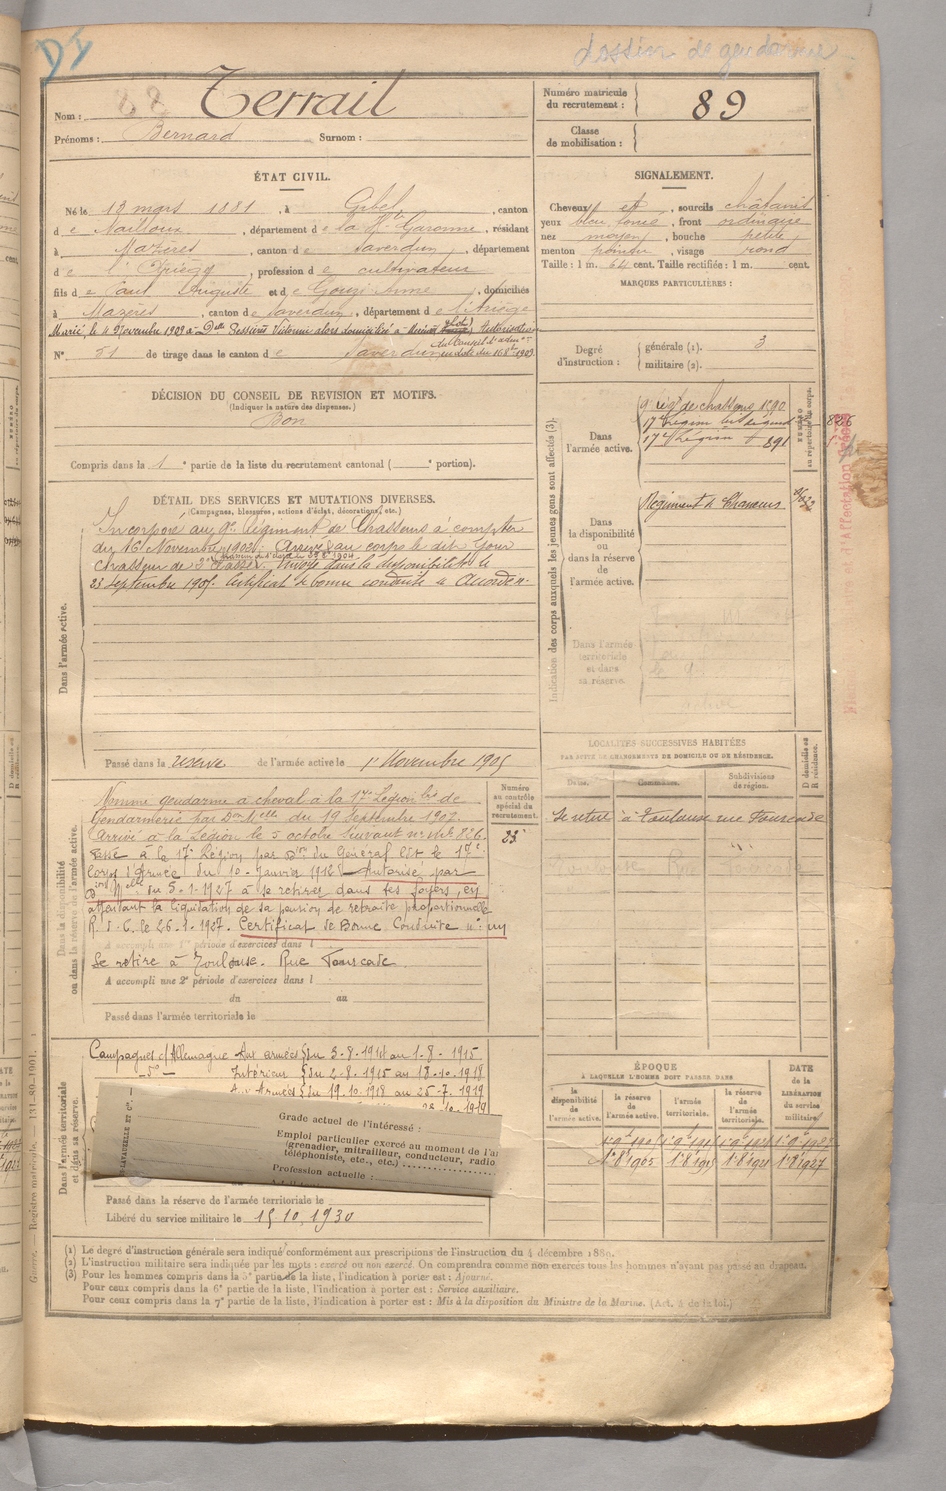 DI
dossier de gendarmerie
Nom : Terrail
Prénoms : Bernard Surnom :
Numéro matricule
du recrutement : 89
Classe
de mobilisation :
ÉTAT CIVIL.
Né le 13 mars 1881, à Gibel, canton
de Nailloux, département de la Hte Garonne, résidant
à Mazères, canton de Saverdun, département
de l'Ariège, profession de cultivateur
fils de Paul Auguste et de Gouzé Anne, domiciliés
à Mazères, canton de Saverdun, département de l'Ariège
Marié le 4 Décembre 1909 à Delle Pessient Victorine alors domiciliée à Autorisation
du Conseil d'adm.on
en date du 16 8bre 1909.
N° 51 de tirage dans le canton de Saverdun
SIGNALEMENT.
Cheveux et, sourcils châtains
yeux bleu foncé, front ordinaire
nez moyen, bouche petite
menton pointu, visage rond
Taille : 1 m. 64 cent. Taille rectifiée : 1 m. cent.
MARQUES PARTICULIÈRES :
Degré
d'instruction :
générale (1). 3
militaire (2).
DÉCISION DU CONSEIL DE REVISION ET MOTIFS.
(Indiquer la nature des dispenses.)
Bon
Compris dans la 1e partie de la liste du recrutement cantonal ( e portion).
DÉTAIL DES SERVICES ET MUTATIONS DIVERSES.
(Campagnes, blessures, actions d'éclat, décorations, etc.)
Dans l'armée active.
Incorporé au 9e Régiment de Chasseurs à compter
du 16 Novembre 1902. Arrivé au corps le dit jour
chasseur de 2e classe. Envoyé dans la disponibilité le
23 septembre 1905. Certificat de bonne conduite "Accordé".
Passé dans la réserve de l'armée active le 1er Novembre 1905
Indication des corps auxquels les jeunes gens sont affectés (3).
Dans
l'armée active.
9e régt de chasseurs 1890
17e Légion bis de gend. 826
17e Légion 891
NUMÉRO
au répertoire du corps.
Dans
la disponibilité
ou
dans la réserve
de
l'armée active.
Régiment de Chasseurs
Dans l'armée
territoriale
et dans
sa réserve.
Dans la disponibilité
ou dans la réserve de l'armée active.
Numéro
au contrôle
spécial du
recrutement.
Nommé gendarme à cheval à la 17e Légion bis de
Gendarmerie par Don Mlle du 19 Septembre 1907.
Arrivé à la Légion le 5 octobre suivant n° mle 826.
Passé à la 17e Légion par Don du Général Cdt le 17e
Corps d'Armée du 10 Janvier 1912. Autorisé par
Don Mlle du 5-1-1927 à se retirer dans ses foyers, en
attendant la liquidation de sa pension de retraite proportionnelle
R. d. C. le 26.1.1927. Certificat de Bonne Conduite n° un
A accompli une 1re période d'exercices dans l
Se retire à Toulouse. Rue Fourcade
A accompli une 2e période d'exercices dans l
du au
Passé dans l'armée territoriale le
LOCALITÉS SUCCESSIVES HABITÉES
PAR SUITE DE CHANGEMENTS DE DOMICILE OU DE RÉSIDENCE.
Dates. Communes. Subdivisions
de région.
D domicile ou
R résidence.
Se retire à Toulouse rue Fourcade
Dans l'armée territoriale
et dans sa réserve.
Campagnes c/Allemagne Aux armées du 3-8-1914 au 1-8-1915
-do- Intérieur du 2-8-1915 au 18-10-1918
Aux Armées du 19.10.1918 au 25-7-1919
Grade actuel de l'intéressé :
Emploi particulier exercé au moment de l'a
(grenadier, mitrailleur, conducteur, radio
téléphoniste, etc., etc.)
Profession actuelle :
Passé dans la réserve de l'armée territoriale le
Libéré du service militaire le 15 10, 1930
ÉPOQUE
À LAQUELLE L'HOMME DOIT PASSER DANS
la
disponibilité
de
l'armée active.
la réserve
de
l'armée active.
l'armée
territoriale.
la réserve
de
l'armée
territoriale.
DATE
de la
LIBÉRATION
du service
militaire.
1er 8bre 1905 1er 8bre 1915 1er 8bre 1921 1er 8bre 1927
(1) Le degré d'instruction générale sera indiqué conformément aux prescriptions de l'instruction du 4 décembre 1889.
(2) L'instruction militaire sera indiquée par les mots : exercé ou non exercé. On comprendra comme non exercés tous les hommes n'ayant pas passé au drapeau.
(3) Pour les hommes compris dans la 5e partie de la liste, l'indication à porter est : Ajourné.
Pour ceux compris dans la 6e partie de la liste, l'indication à porter est : Service auxiliaire.
Pour ceux compris dans la 7e partie de la liste, l'indication à porter est : Mis à la disposition du Ministre de la Marine. (Art. 4 de la loi.)
Guerre. — Registre matricule. — 131-89-1901.